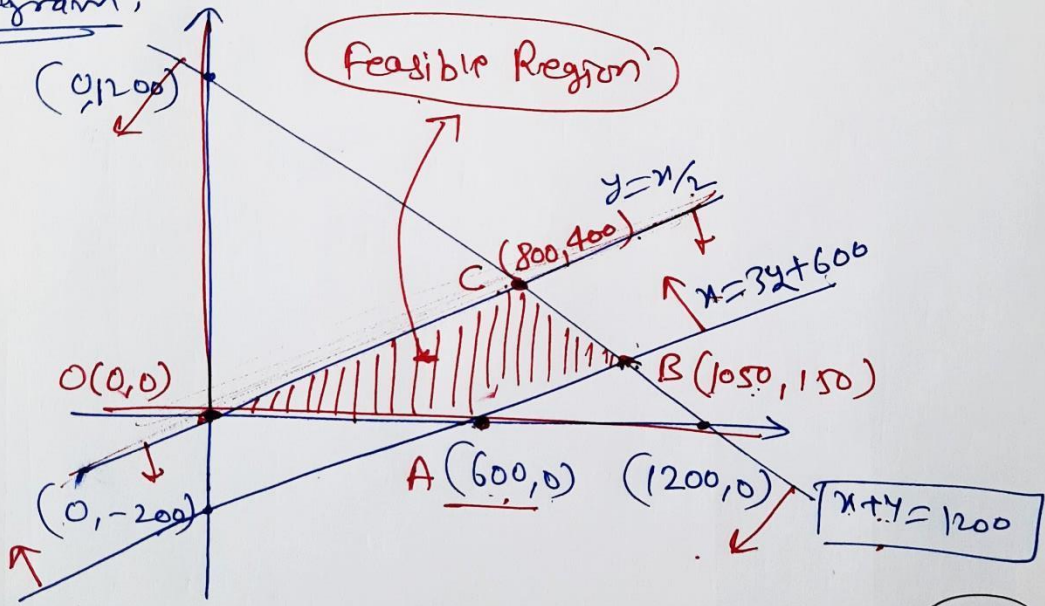 gram,
(0,1200)
Feasible Region
y=x/2
C (800,400)
x=3y+600
O(0,0)
B (1050, 150)
A (600,0)
(1200,0)
(0,-200)
x+y=1200